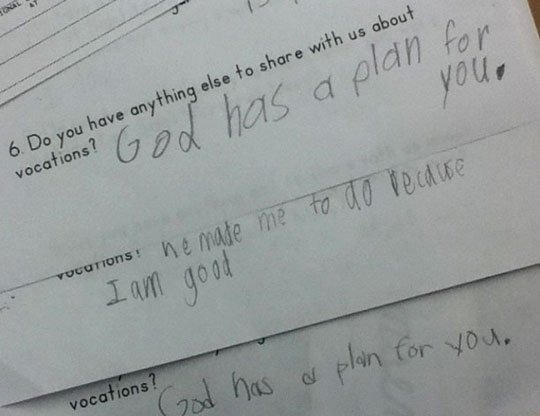 6. Do you have anything else to share with us about
vocations? God has a plan for
you.
vocations? he made me to do because
I am good
vocations? God has a plan for you.